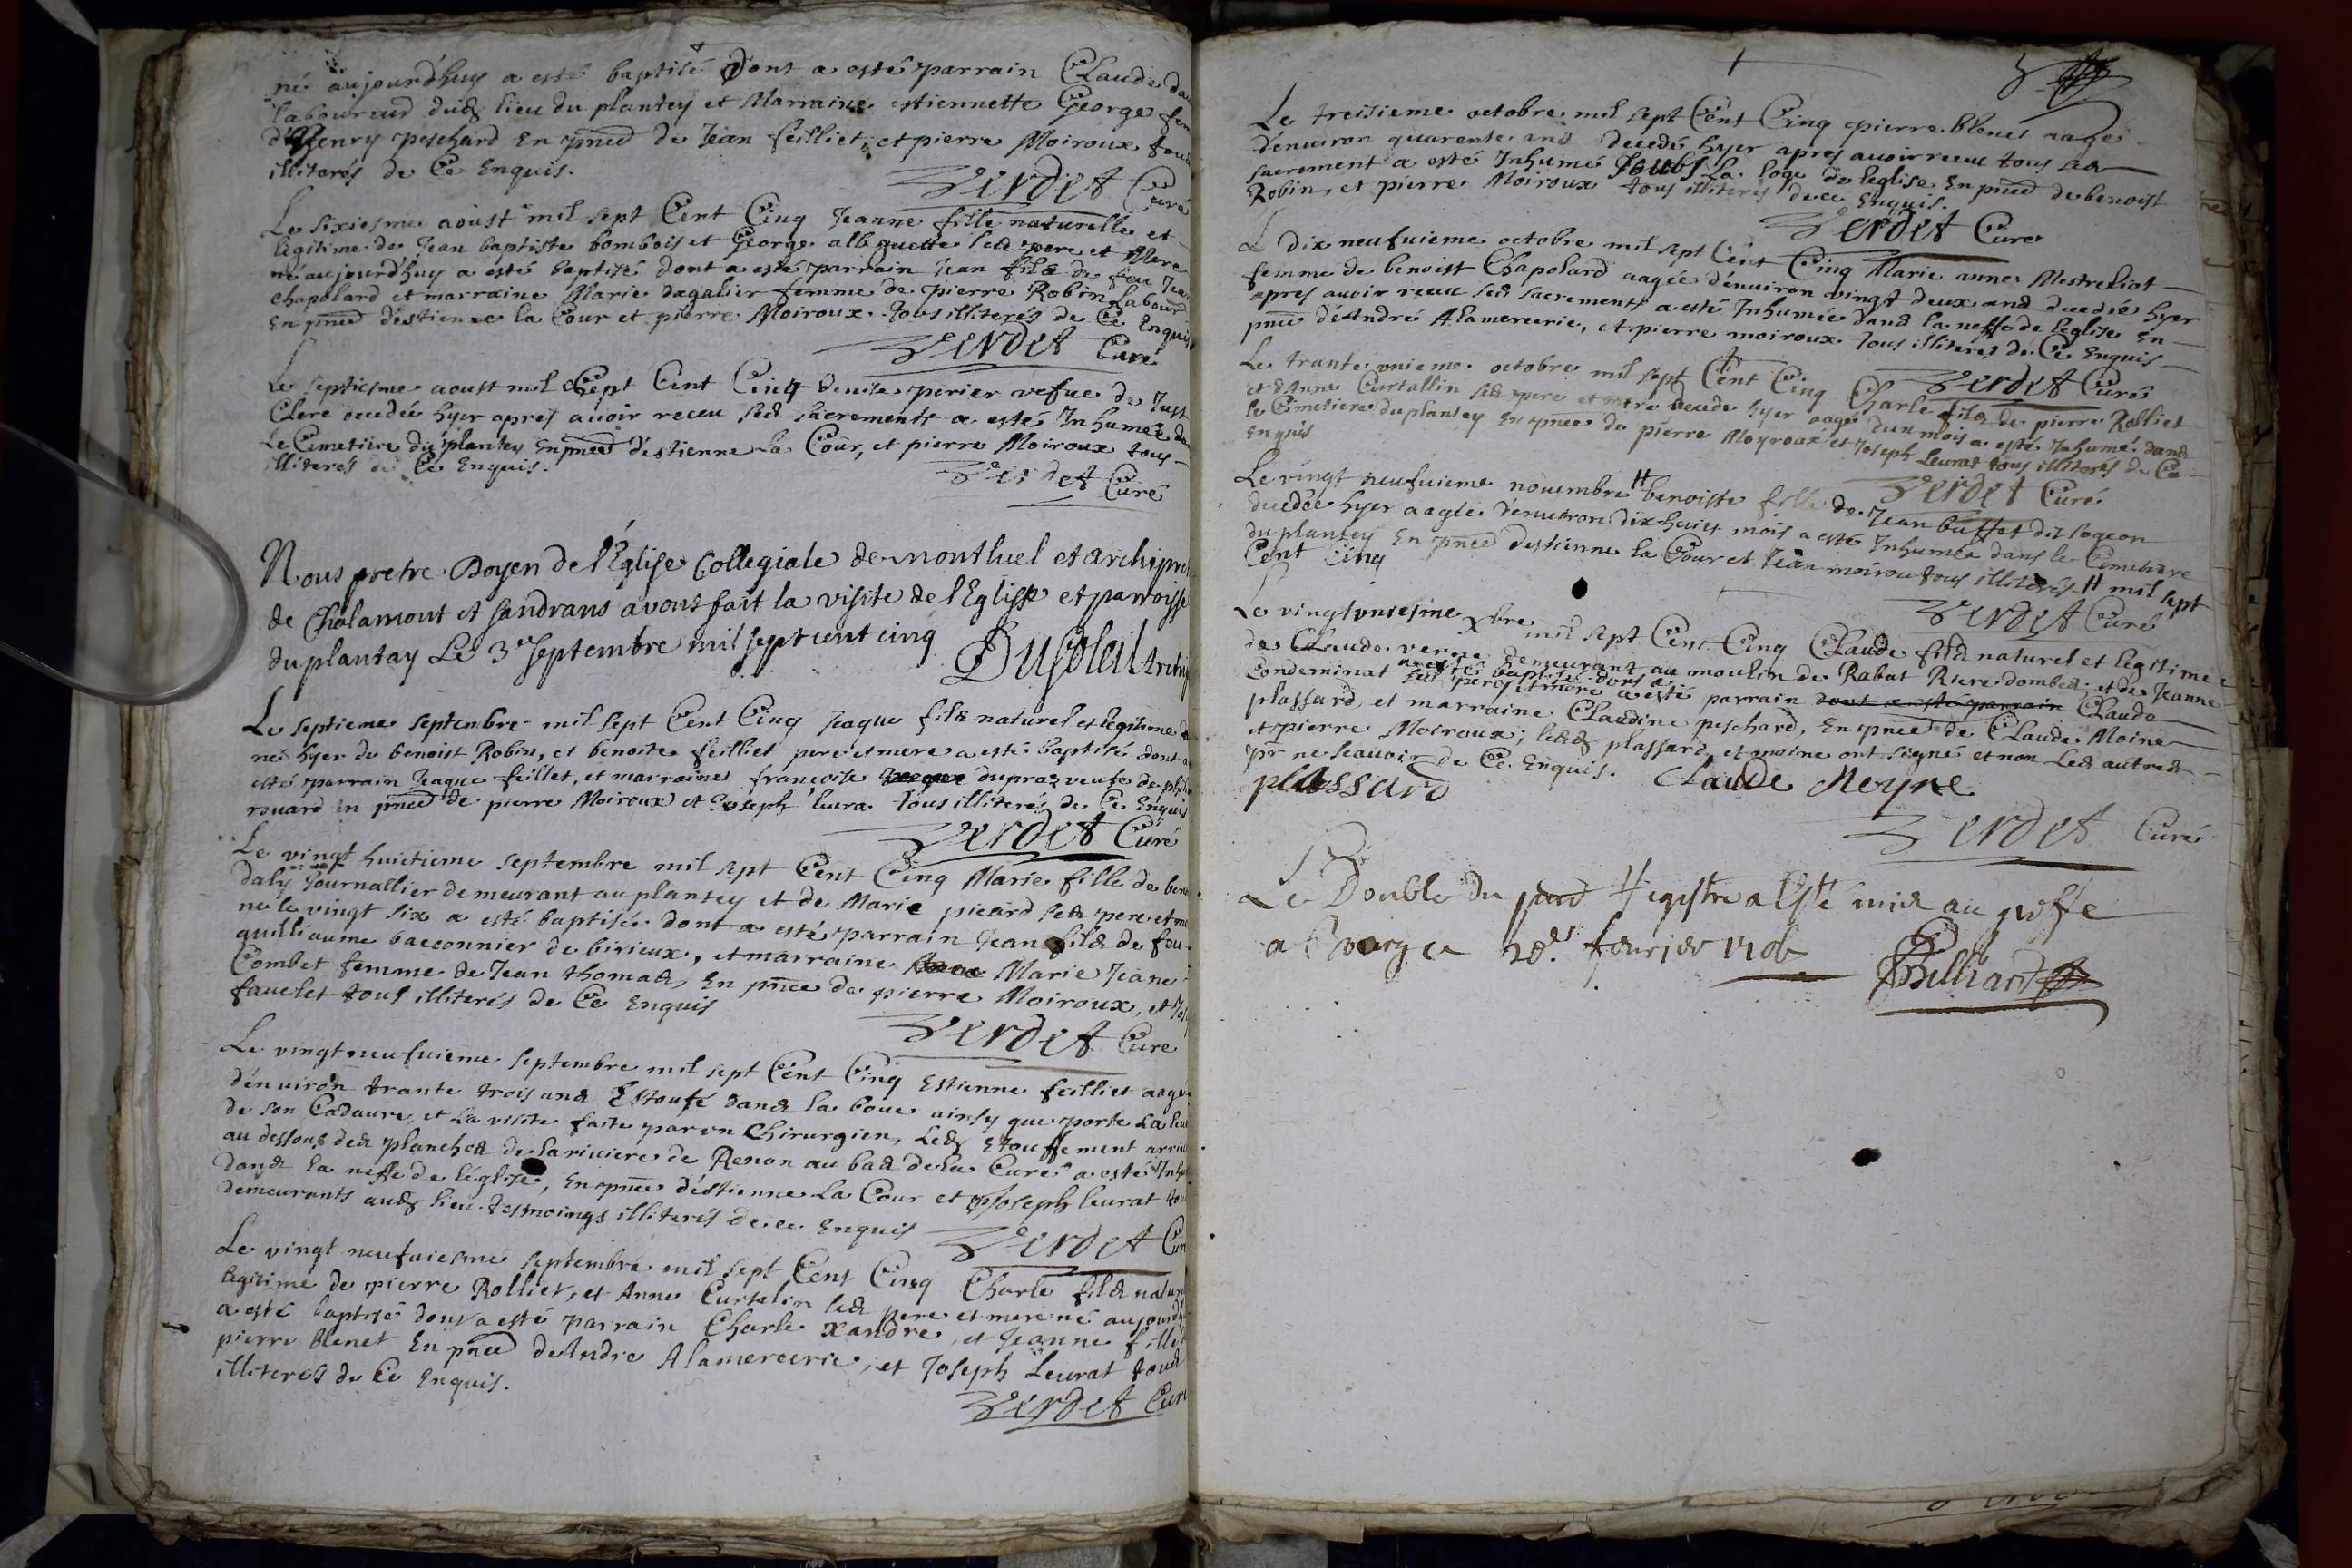 né aujourd'huy a esté baptisé dont a esté parrain Claude
laboureur dud lieu du plantey et Marraine estiennette George
d'Henry peschard En pnce de Jean feilliet, et pierre Moiroux tous
illiterés de Ce Enquis.
Verdet Curé
Le sixiesme aoust mil sept Cent Cinq Jeanne fille naturelle et
legitime de Jean baptiste bombois et George alleguette ses pere et Mere
né aujourd'huy a esté baptisé dont a esté parrain Jean fils de feu Jean
Chapolard et marraine Marie dagalier femme de pierre Robin Labour
En pnce d'estienne la Cour et pierre Moiroux tous illiterés de Ce Enquis
Verdet Curé
Le septiesme aoust mil Sept Cent Cinq denise perier vefue de Just
Clere decedée hyer apres avoir receu ses sacrements a esté Inhumée
Le Cemetiere du plantey En pnce d'estienne La Cour, et pierre Moiroux tous
illiterés de Ce Enquis.
Verdet Curé
Nous pretre Doyen de l'Église Collegiale de montluel et archipre
de Chalamont et sandrans avons fait la visite de l'Eglise et parroisse
du plantay Le 3e septembre mil sept cent cinq Dusoleil Archip
Le septieme septembre mil sept Cent Cinq Jaque fils naturel et legitime
né hyer de benoist Robin, et benoite feilliet pere et mere a esté baptisé dont a
esté parrain Jaque feillet, et marraine francoise dupraz veufe de
rouard En pnce de pierre Moiroux et Joseph leura tous illiterés de Ce Enquis
Verdet Curé
Le vingt huictieme septembre mil sept Cent Cinq Marie fille de
daly Journallier demeurant au plantey et de Marie picard ses pere et
né le vingt six a esté baptisée dont a esté parrain Jean fils de feu
guilliaume bacconnier de birieux, et marraine Marie Jeane
Combet femme de Jean thomas, En pnce de pierre Moiroux, et
fauclet tous illiterés de Ce Enquis
Verdet Cure
Le vingtneufuieme septembre mil sept Cent Cinq Estienne feilliet aagé
d'enuiron trante trois ans Estoufé dans la boue ainsy que porte La
de son Cadaure, et La visite faite par vn Chirurgien, Led Etouffement
au dessous des planches de lariviere de Renon au bas de la Cure a esté
dans la neffe de l'église, En pnce d'estienne La Cour et Joseph leurat
demeurants aud lieu tesmoings illiterés de ce Enquis
Verdet Cur
Le vingt neufuiesme septembre mil sept Cent Cinq Charle fils natur
legitime de pierre Rolliet, et Anne Curtalin ses pere et mere né aujourd
a esté baptisé dont a esté parrain Charle xandre, et Jeanne fille
pierre blenet En pnce de Andre Alamercerie, et Joseph Leurat tous
illiterés de Ce Enquis.
Verdet Curé
5
Le treisieme octobre mil sept Cent Cinq pierre blenet aagé
d'enuiron quarente ans decedé hyer apres auoir receu tous ses
sacrement a esté Inhumé soubs La loge de leglise En pnce de benoist
Robin, et pierre Moiroux tous illiterés de ce Enquis.
Verdet Cure
L dix neufuieme octobre mil sept Cent Cinq Marie anne Mestreliot
femme de benoist Chapolard aagée d'enuiron vingt deux ans decedée hyer
apres auoir receu ses sacrements a esté Inhumée dans la neffe de leglise En
pnce de André Alamercerie, et pierre moiroux tous illiterés de Ce Enquis
Verdet Curé
Le trante vnieme octobre mil sept Cent Cinq Charle fils de pierre Rolliet
et d'Anne Curtallin ses pere et mere decede hyer aagé dun mois a esté Inhumé dans
le Cimetiere du plantey En pnce de pierre Moyroux et Joseph Leurat tous illiterés de Ce
Enquis
Verdet Curé
Le vingt neufuieme nouembre # benoiste fille de Jean buffet dit logeon
decedée hyer aagée d'enuiron dix huict mois a esté Inhumée dans le Cimetiere
du plantey En pnce destienne la Cour et Jean moirou tous illiterés # mil sept
Cent Cinq
Verdet Curé
Le vingtvniesme xbre mil sept Cent Cinq Claude fils naturel et legitime
de Claude verne demeurant au moulin de Rabat Riere dombes; et de Jeanne
Condeminat ses pere et mere a esté baptisé dont a esté parrain dont a esté parrain Claude
plassard, et marraine Claudine peschard, En pnce de Claude Moine
et pierre Moiroux; lesd plassard, et moine ont signé et non Les autres
pr ne scauoir de Ce Enquis.
plassard Claude Moyne
Verdet Curé
Le Double du pnt Registre a Esté mis au greffe
a bourg ce 28e feurier 1706
Billiard